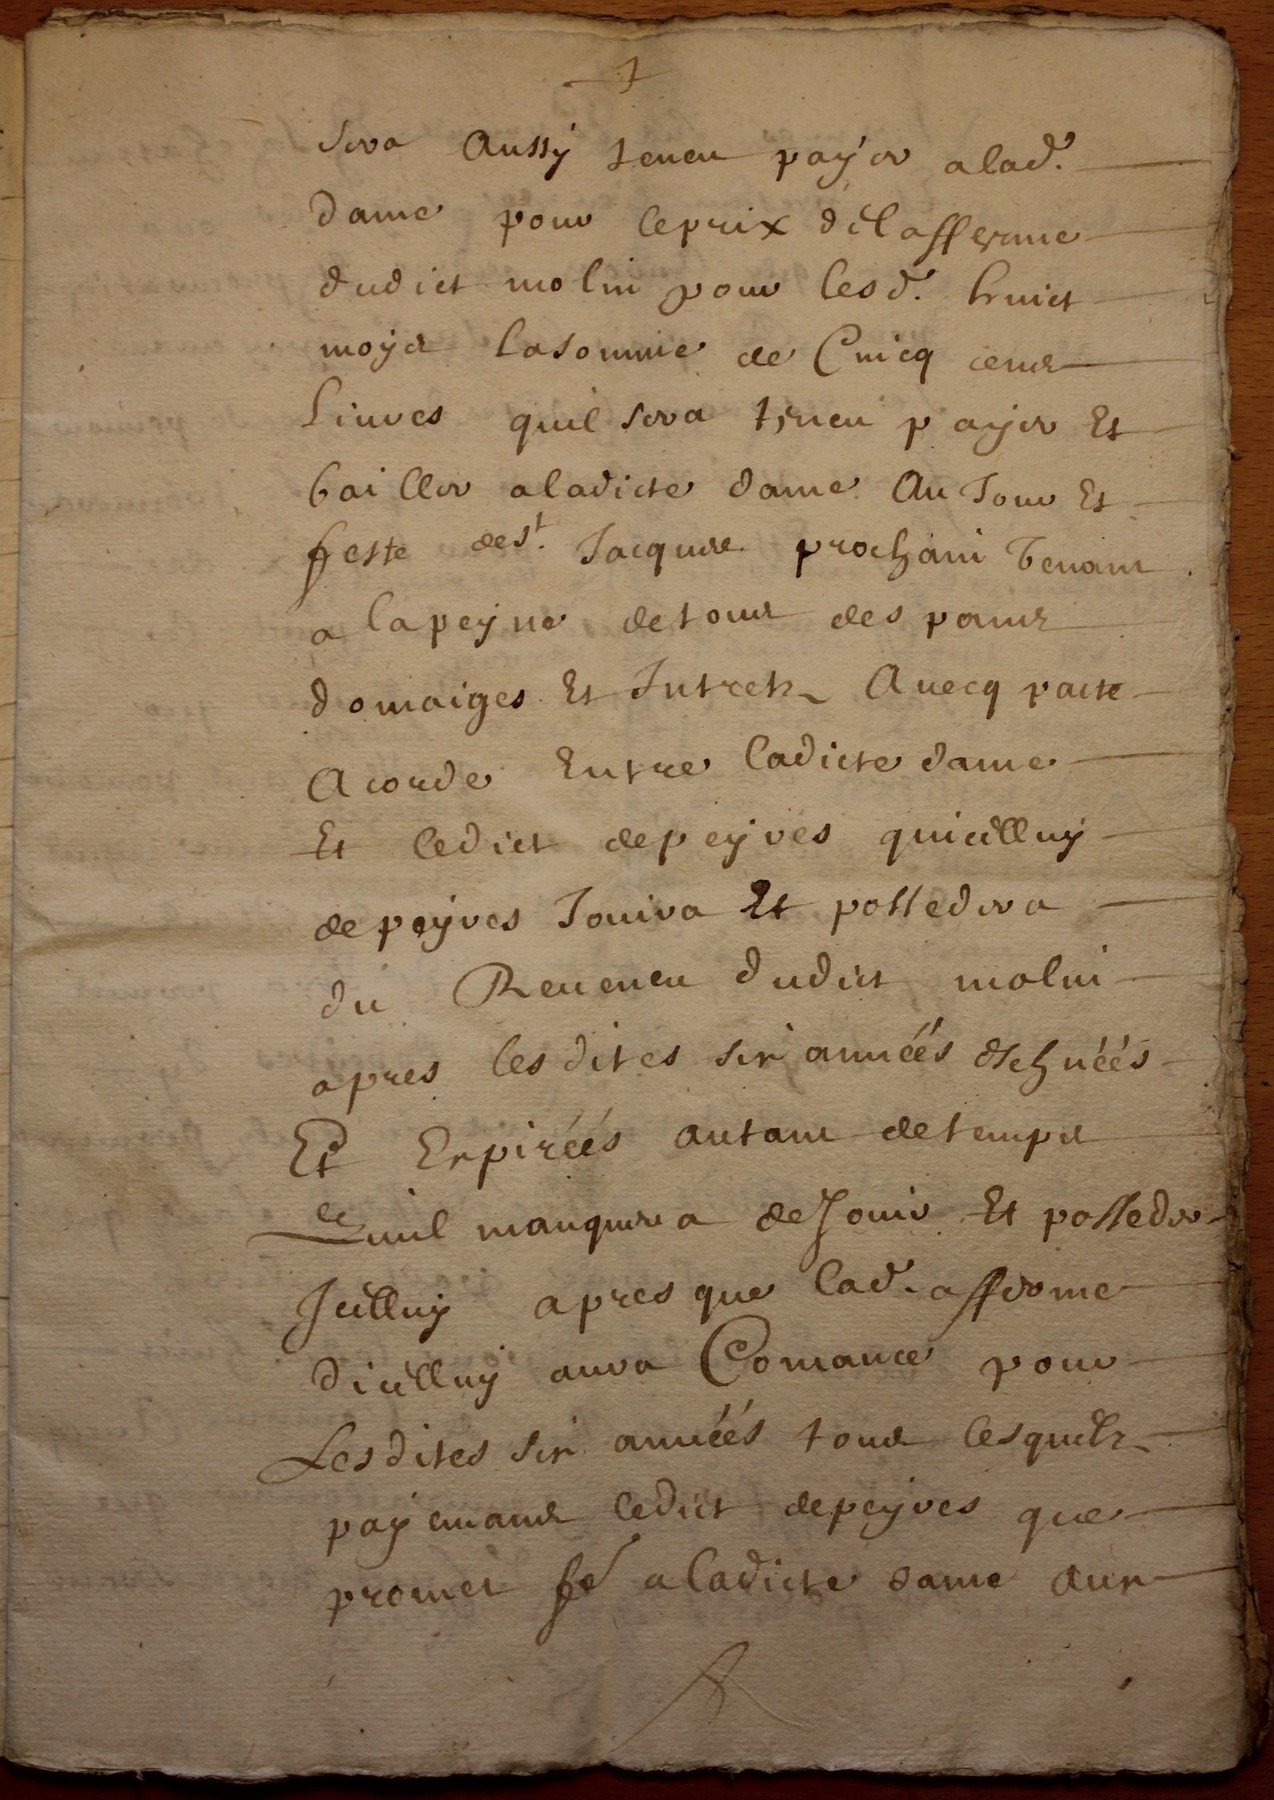 sera Aussy teneu payer a lad.
dame pour le prix de l afferme
dudict molin pour lesd. huict
moys La somme de Cincq cens
Liures quil sera teneu payer Et
bailler a ladicte dame Au Jour Et
feste de st. Jacques prochain venant
a la peyne de tous des pans
domaiges Et Intretz Auecq pacte
Acorde Entre ladicte dame
Et ledict depeyres quicelluy
depeyres Jouira Et possedera
du Reueneu dudict molin
apres lesdites six années escheéés
Et Expiréés autant de temps
quil manquera de Jouir Et posseder
Jcelluy apres que lad. afferme
dicelluy aura Comance pour
Lesdites six annéés tous lesquels
payemans ledict depeyres que
promet fe a ladicte dame aux